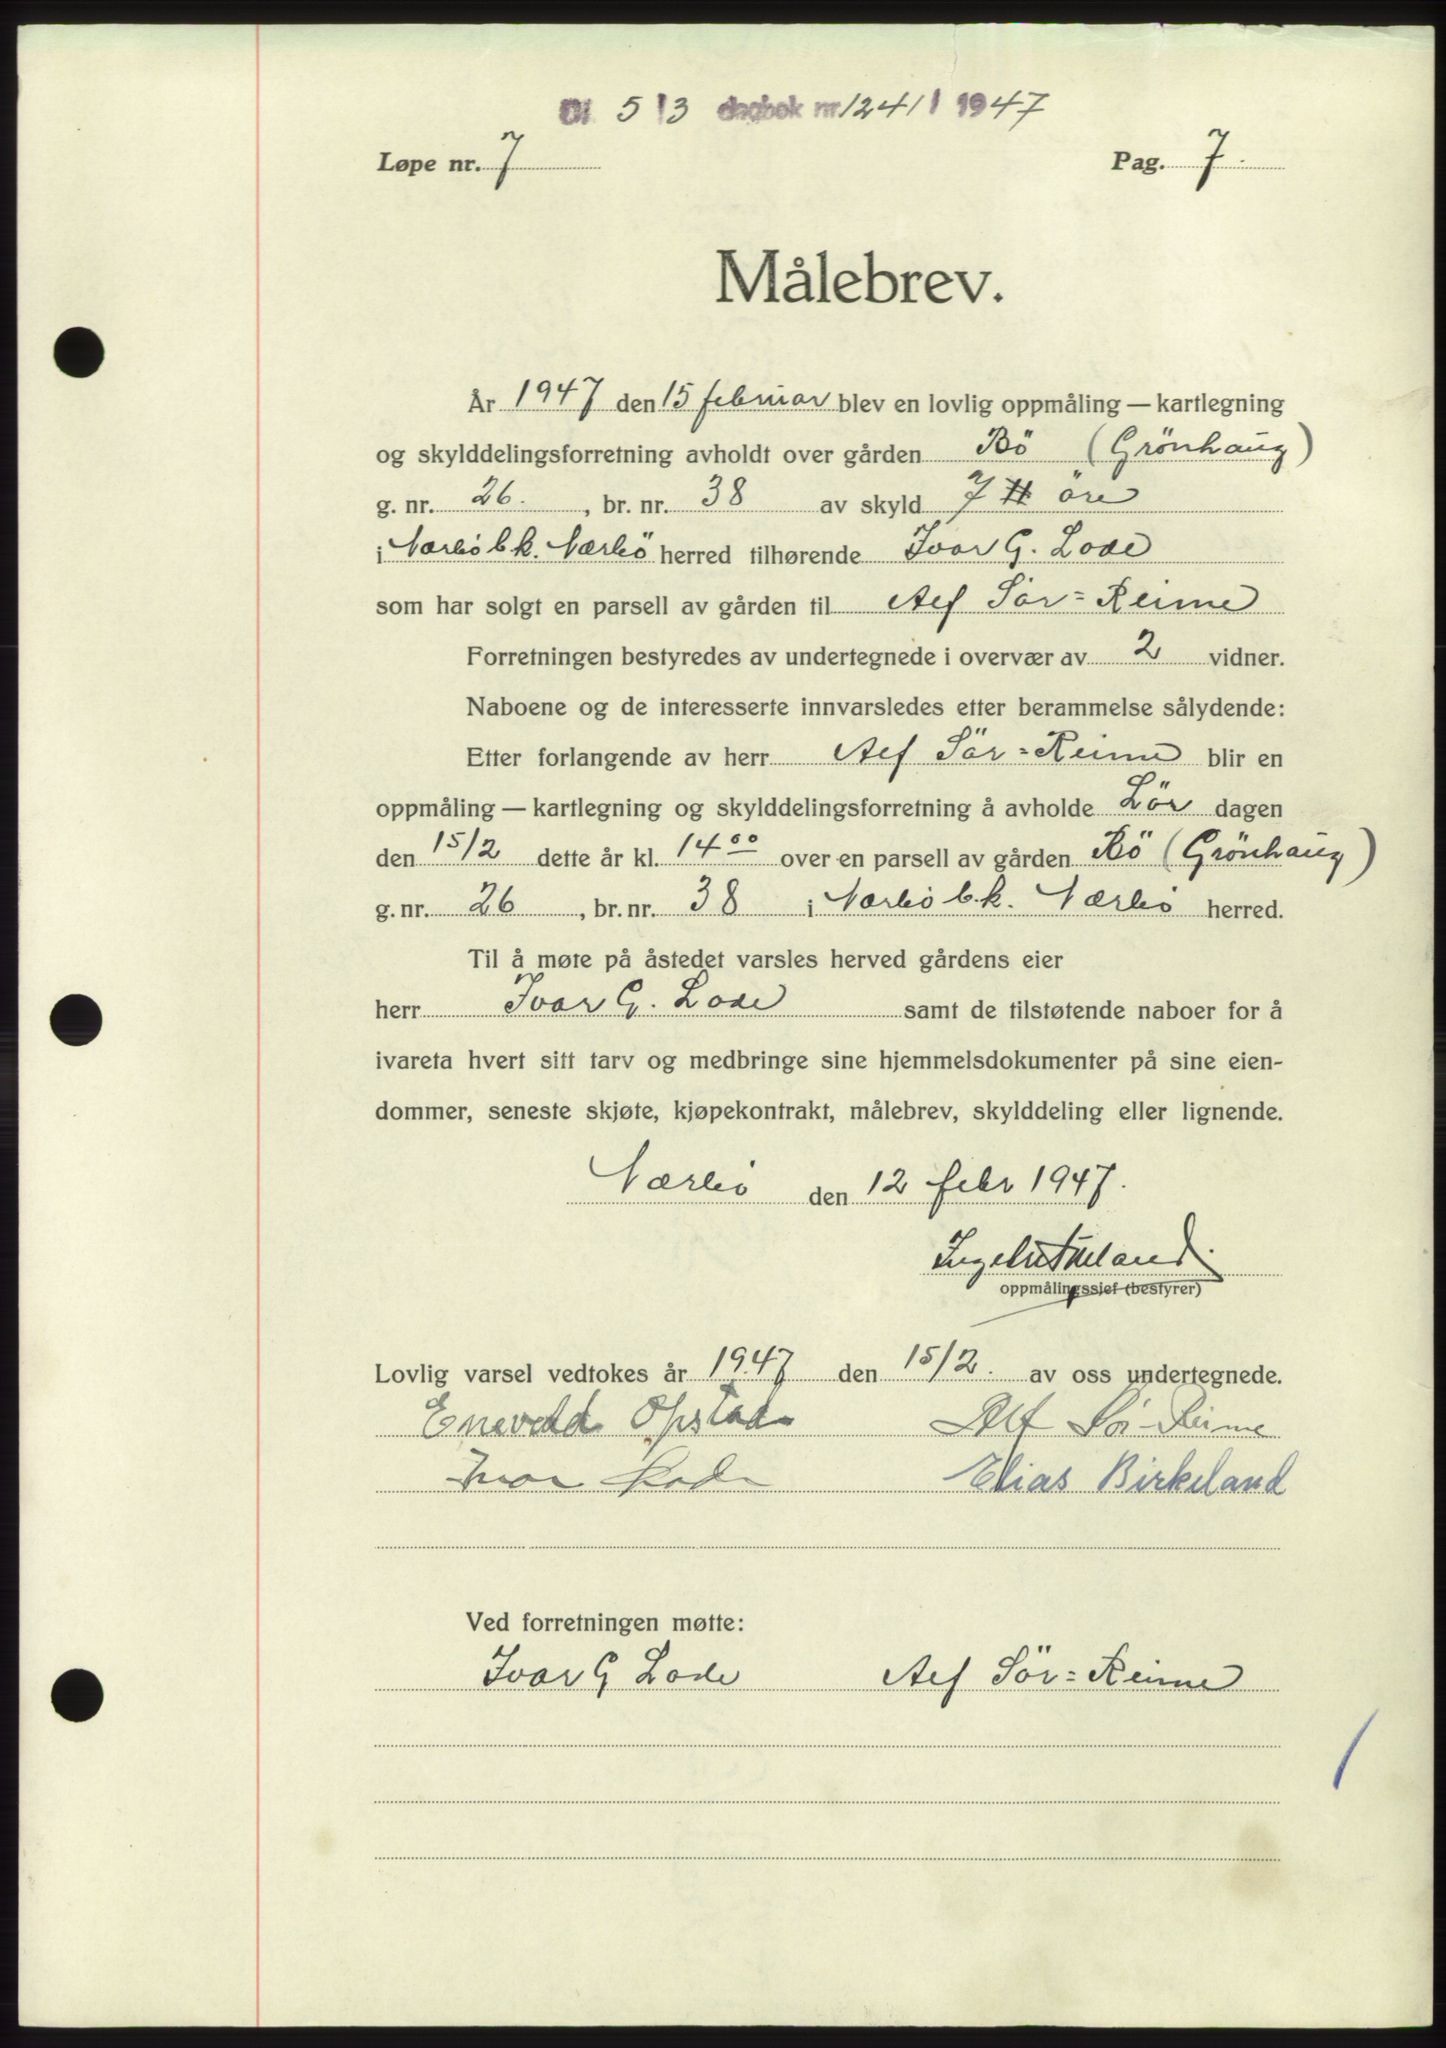 Dl. 5/3 dagbok nr. 1241/1947
Løpe nr. 7 Pag. 7.
Målebrev.
År 1947 den 15 februar blev en lovlig oppmåling — kartlegning
og skylddelingsforretning avholdt over gården Bö (Grönhaug)
g. nr. 26. , br. nr. 38 av skyld 7 öre
i Nærbö b.k. Nærbö herred tilhørende Ivar G. Lode
som har solgt en parsell av gården til Alf Sör=Reime
Forretningen bestyredes av undertegnede i overvær av 2 vidner.
Naboene og de interesserte innvarsledes etter berammelse sålydende:
Etter forlangende av herr Alf Sör=Reime blir en
oppmåling — kartlegning og skylddelingsforretning å avholde Lör dagen
den 15/2 dette år kl. 14 00 over en parsell av gården Bö (Grönhaug)
g. nr. 26 , br. nr. 38 i Nærbö b.k. Nærbö herred.
Til å møte på åstedet varsles herved gårdens eier
herr Ivar G. Lode samt de tilstøtende naboer for å
ivareta hvert sitt tarv og medbringe sine hjemmelsdokumenter på sine eien-
dommer, seneste skjøte, kjøpekontrakt, målebrev, skylddeling eller lignende.
Nærbö den 12 febr 1947.
oppmålingssjef (bestyrer)
Lovlig varsel vedtokes år 1947 den 15/2. av oss undertegnede.
Enevald Opstad Alf Sör-Reime
Ivar Lode Elias Birkeland
Ved forretningen møtte:
Ivar G Lode Alf Sör=Reime